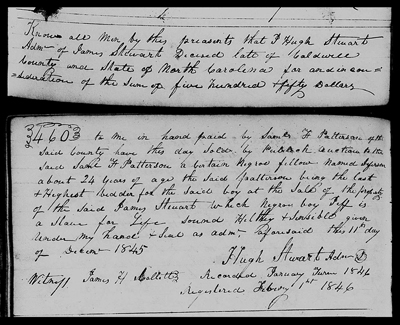 Know all Men by this preasents that I Hugh Stuart
Admr of James Stewart Diceased late of Caldwell
County and State of North Carolina for and in con=
=sideration of the Sum of five hundred & fifty Dollars
34603 to me in hand paid by Saml F Patterson of the
Said County have this day Sold by Publick auction to the
Said Saml F Patterson a Certain Negroe fellow Named
about 24 years of age the Said Patterson being the last
& Highest bidder for the Said boy at the Sale of the property
of the Said James Stewart which Negroe boy Jeff is
a Slave for Life Sound Helthey & Sensible given
Under my hand & Seal as admr aforesaid this 11th day
of Decemr 1845
Hugh Stuart Admr
Witness James H Recorded January Term 1846
Registered Feb'ry 1st 1846